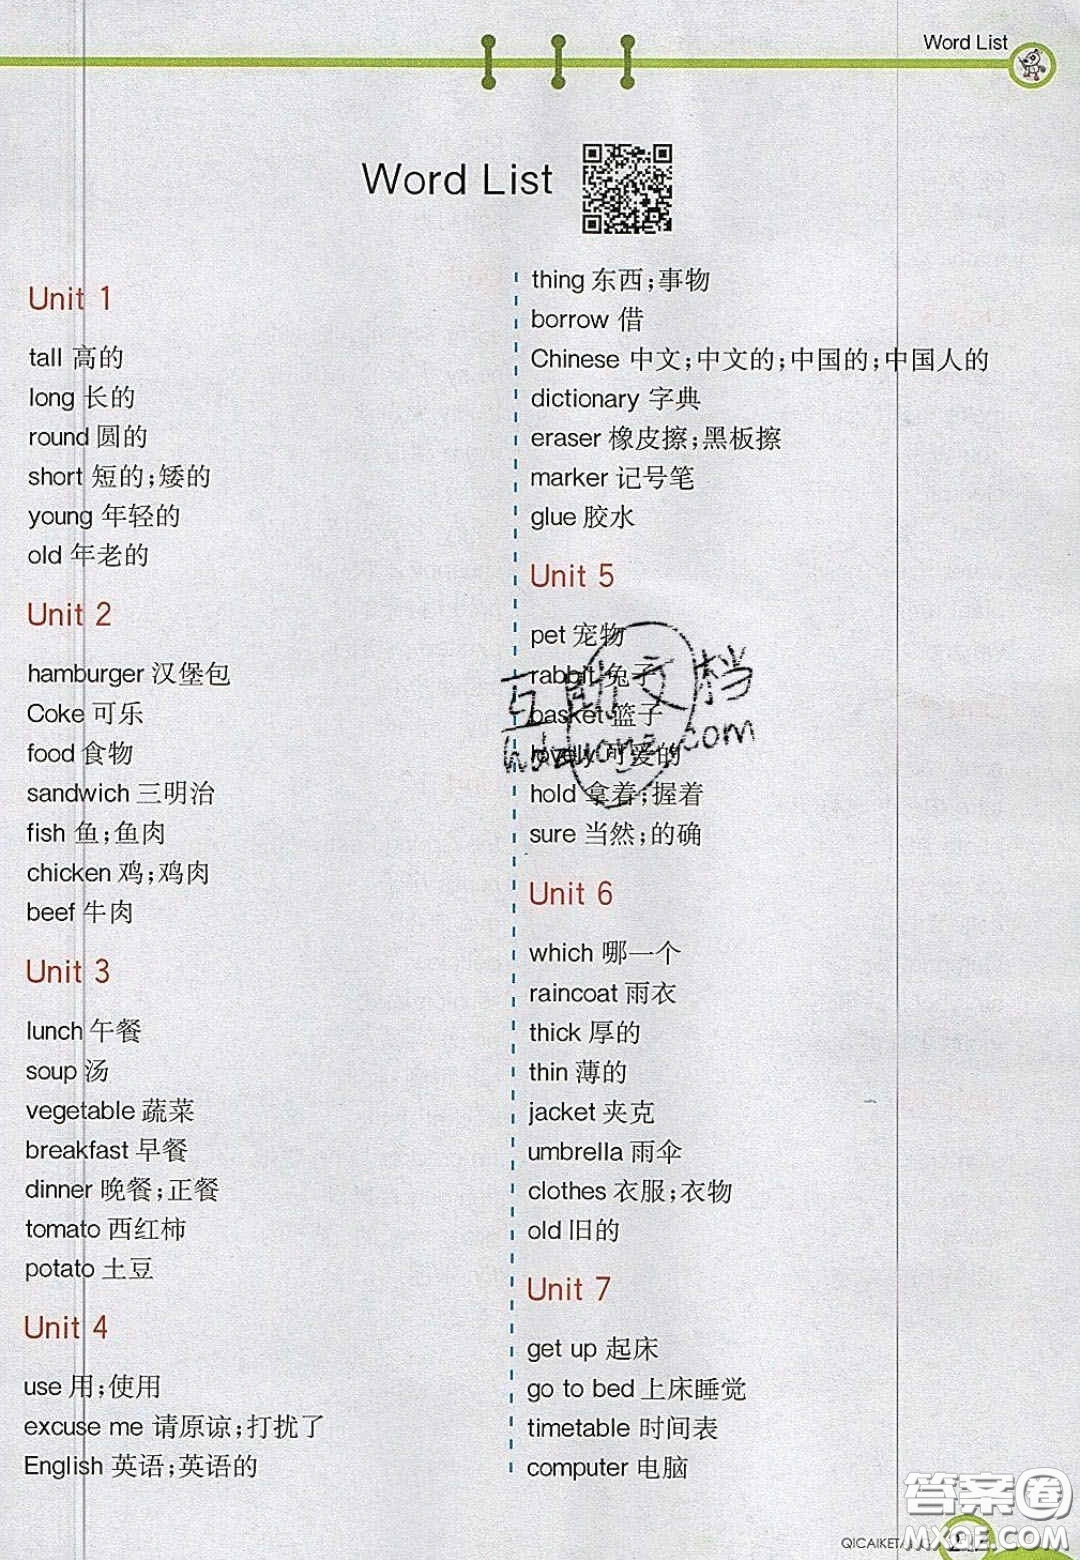 Word List
Word List
Unit 1
tall 高的
long 长的
round 圆的
short 短的;矮的
young 年轻的
old 年老的
Unit 2
hamburger 汉堡包
Coke 可乐
food 食物
sandwich 三明治
fish 鱼;鱼肉
chicken 鸡;鸡肉
beef 牛肉
Unit 3
lunch 午餐
soup 汤
vegetable 蔬菜
breakfast 早餐
dinner 晚餐;正餐
tomato 西红柿
potato 土豆
Unit 4
use 用;使用
excuse me 请原谅;打扰了
English 英语;英语的
thing 东西;事物
borrow 借
Chinese 中文;中文的;中国的;中国人的
dictionary 字典
eraser 橡皮擦;黑板擦
marker 记号笔
glue 胶水
Unit 5
pet 宠物
rabbit 兔子
basket 篮子
lovely 可爱的
hold 拿着;握着
sure 当然;的确
互助文档
Unit 6
which 哪一个
raincoat 雨衣
thick 厚的
thin 薄的
jacket 夹克
umbrella 雨伞
clothes 衣服;衣物
old 旧的
Unit 7
get up 起床
go to bed 上床睡觉
timetable 时间表
computer 电脑
答案圈
MXQE.COM